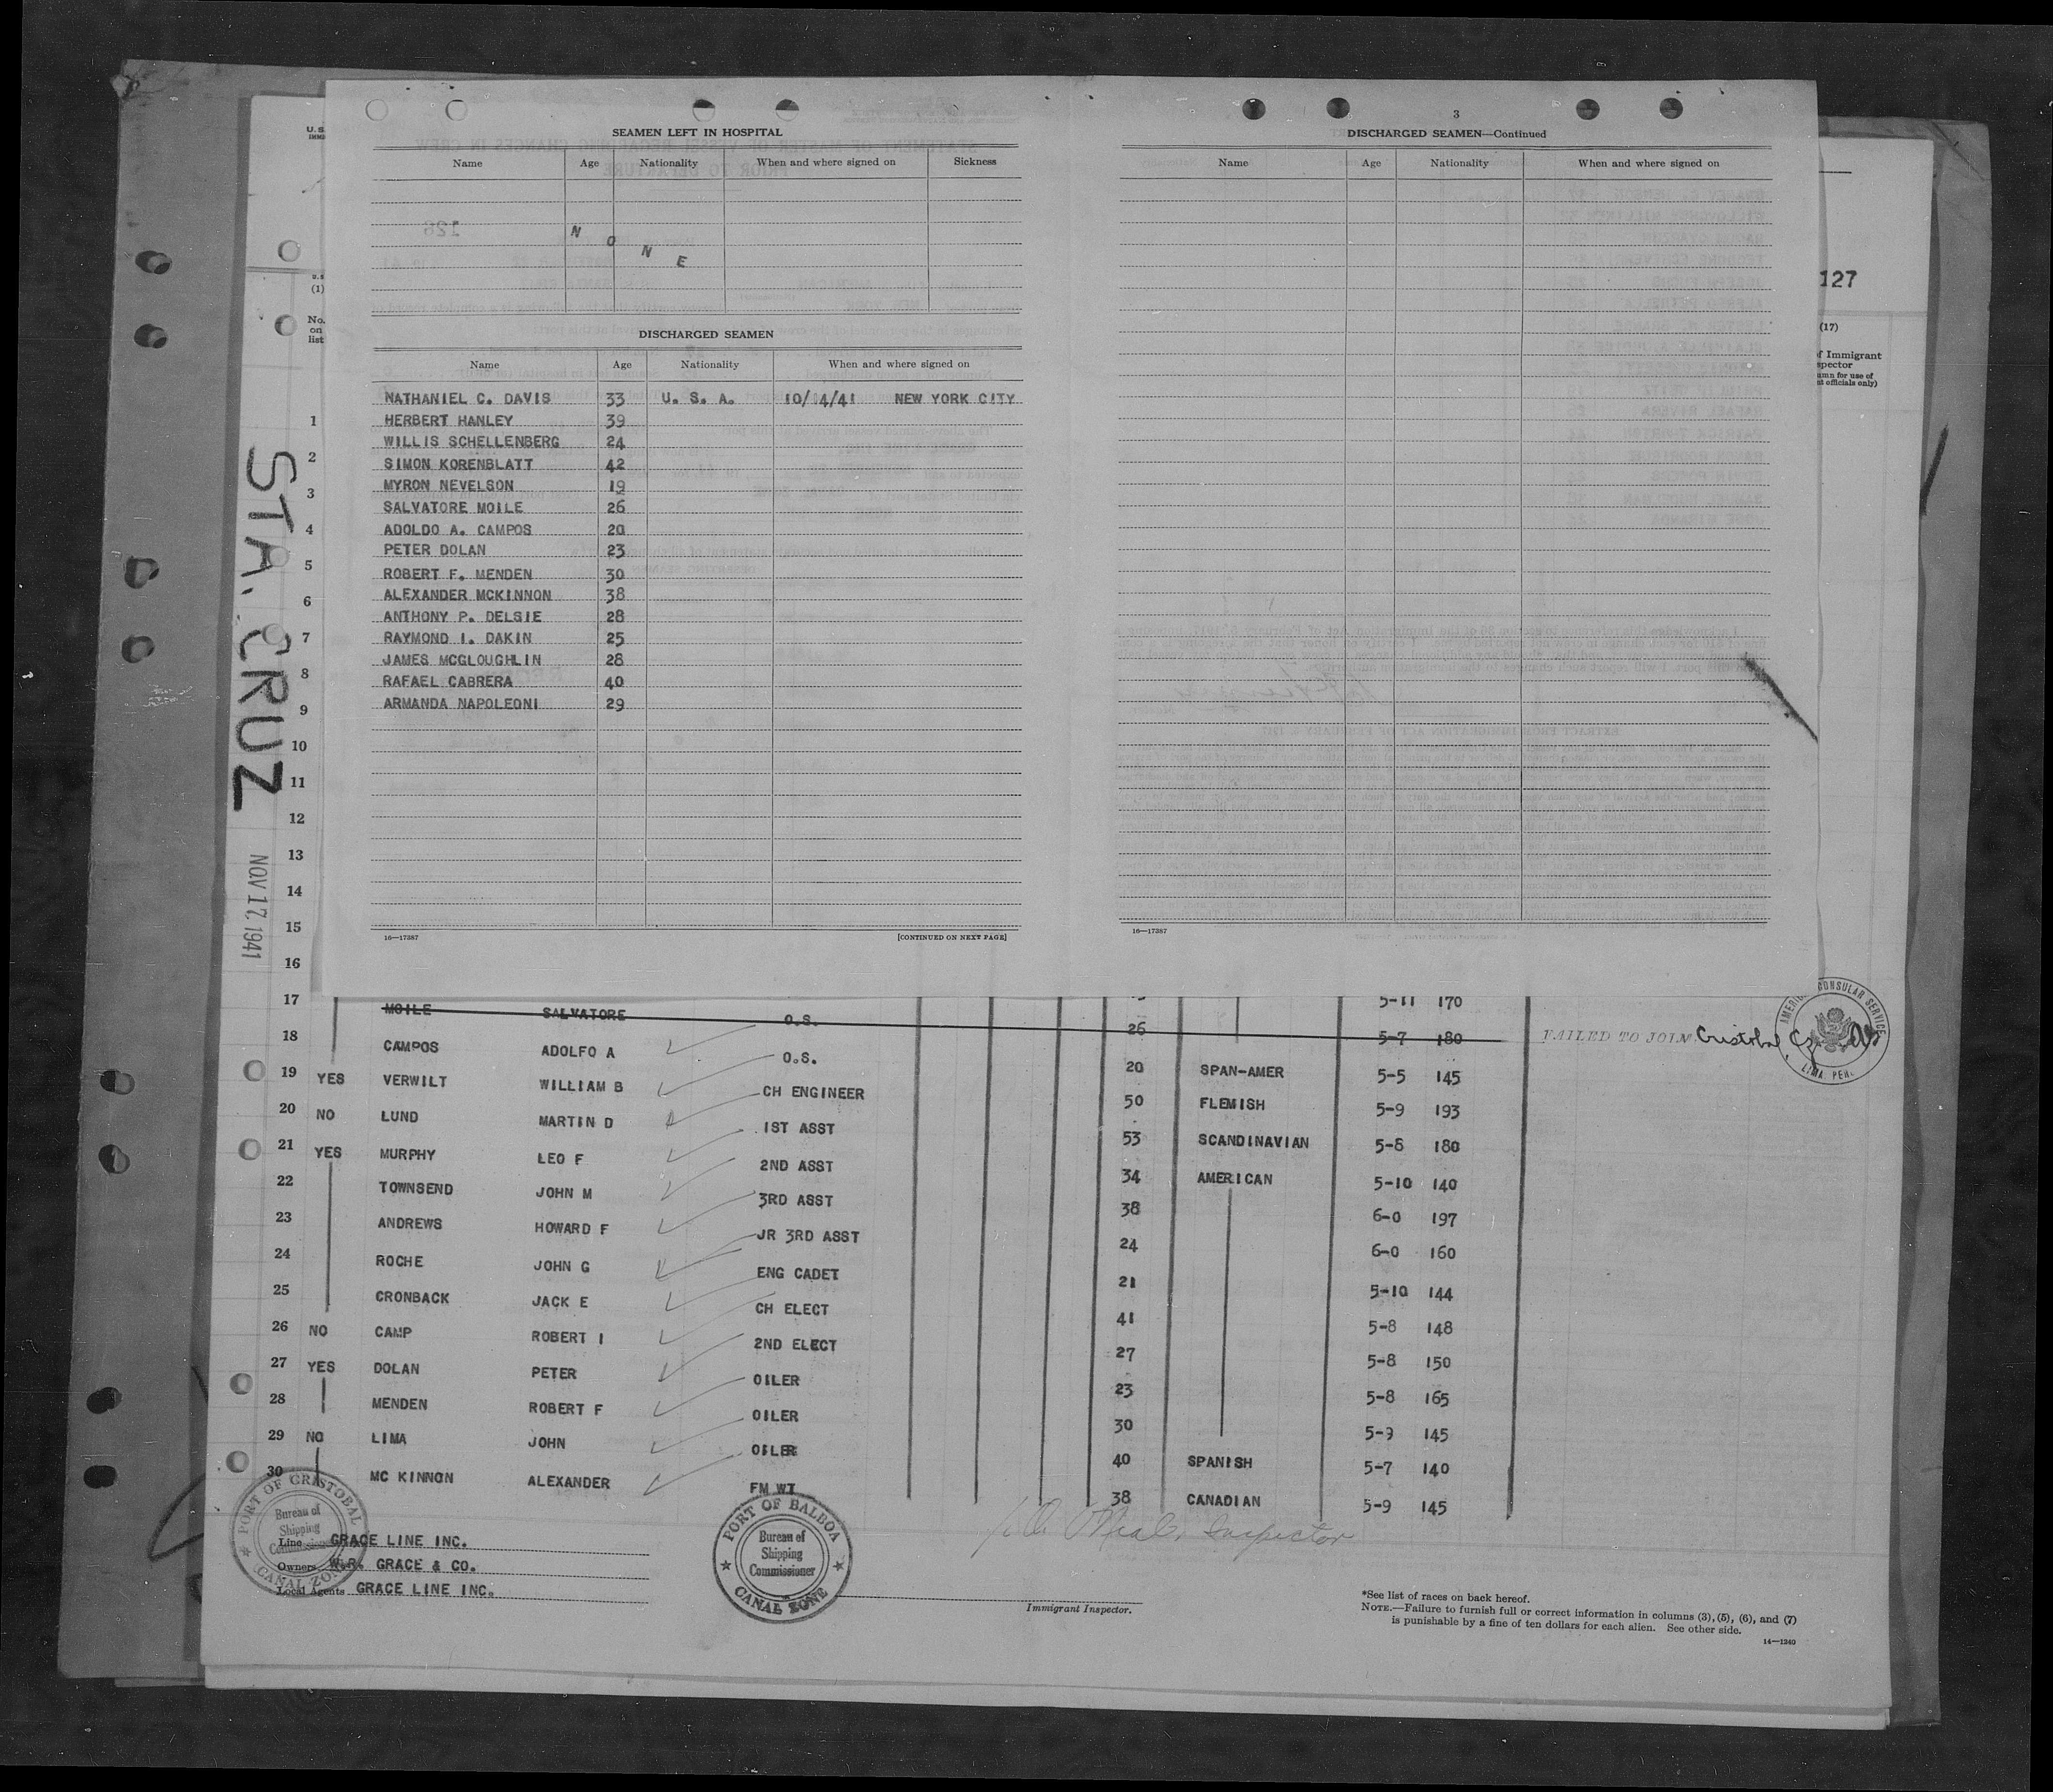 SEAMEN LEFT IN HOSPITAL
Name Age Nationality When and where signed on Sickness
N O N E
DISCHARGED SEAMEN
Name Age Nationality When and where signed on
NATHANIEL C. DAVIS 33 U. S. A. 10/14/41 NEW YORK CITY
HERBERT HANLEY 39
WILLIS SCHELLENBERG 24
SIMON KORENBLATT 42
MYRON NEVELSON 19
SALVATORE MOILE 26
ADOLDO A. CAMPOS 20
PETER DOLAN 23
ROBERT F. MENDEN 30
ALEXANDER MCKINNON 38
ANTHONY P. DELSIE 28
RAYMOND I. DAKIN 25
JAMES MCGLOUGHLIN 28
RAFAEL CABRERA 40
ARMANDA NAPOLEONI 29
16—17387 [CONTINUED ON NEXT PAGE]
3
DISCHARGED SEAMEN—Continued
Name Age Nationality When and where signed on
16—17387
127
(17)
of Immigrant
(1)
No.
on
list
STA. CRUZ
NOV 17, 1941
1
2
3
4
5
6
7
8
9
10
11
12
13
14
15
16
17 5-11 170
18 MOILE SALVATORE O.S. 26 5-7 180 FAILED TO JOIN Cristobal CZ
CAMPOS ADOLFO A O.S. 20 SPAN-AMER 5-5 145
19 YES VERWILT WILLIAM B CH ENGINEER 50 FLEMISH 5-9 193
20 NO LUND MARTIN D 1ST ASST 53 SCANDINAVIAN 5-8 180
21 YES MURPHY LEO F 2ND ASST 34 AMERICAN 5-10 140
22 TOWNSEND JOHN M 3RD ASST 38 6-0 197
23 ANDREWS HOWARD F JR 3RD ASST 24 6-0 160
24 ROCHE JOHN G ENG CADET 21 5-10 144
25 CRONBACK JACK E CH ELECT 41 5-8 148
26 NO CAMP ROBERT I 2ND ELECT 27 5-8 150
27 YES DOLAN PETER OILER 23 5-8 165
28 MENDEN ROBERT F OILER 30 5-9 145
29 NO LIMA JOHN OILER 40 SPANISH 5-7 140
30 MC KINNON ALEXANDER FM WT 38 CANADIAN 5-9 145
AMERICAN CONSULAR SERVICE
LIMA, PERU
PORT OF CRISTOBAL
Bureau of
Shipping
Commissioner
CANAL ZONE
PORT OF BALBOA
Bureau of
Shipping
Commissioner
CANAL ZONE
Inspector
Line GRACE LINE INC.
Owners W.R. GRACE & CO.
Local Agents GRACE LINE INC.
Immigrant Inspector.
*See list of races on back hereof.
NOTE.—Failure to furnish full or correct information in columns (3), (5), (6), and (7)
is punishable by a fine of ten dollars for each alien. See other side.
14—1240